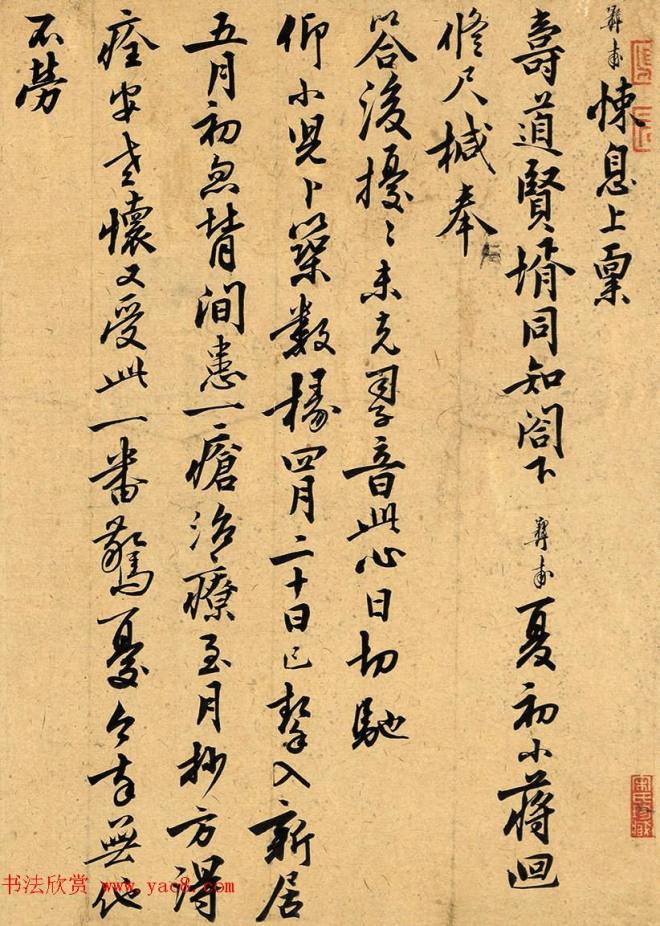 悚息上稟
壽道賢壻同知閤下 夏初小蔣迴
修尺椷奉
答後擾〻未克嗣音此心日切馳
仰小兒卜築數椽四月二十日已挈入新居
五月初忽背間患一瘡治療至月抄方得
痊安老懷又受此一番驚憂今幸無他
不勞
书法欣赏 www.yac8.com